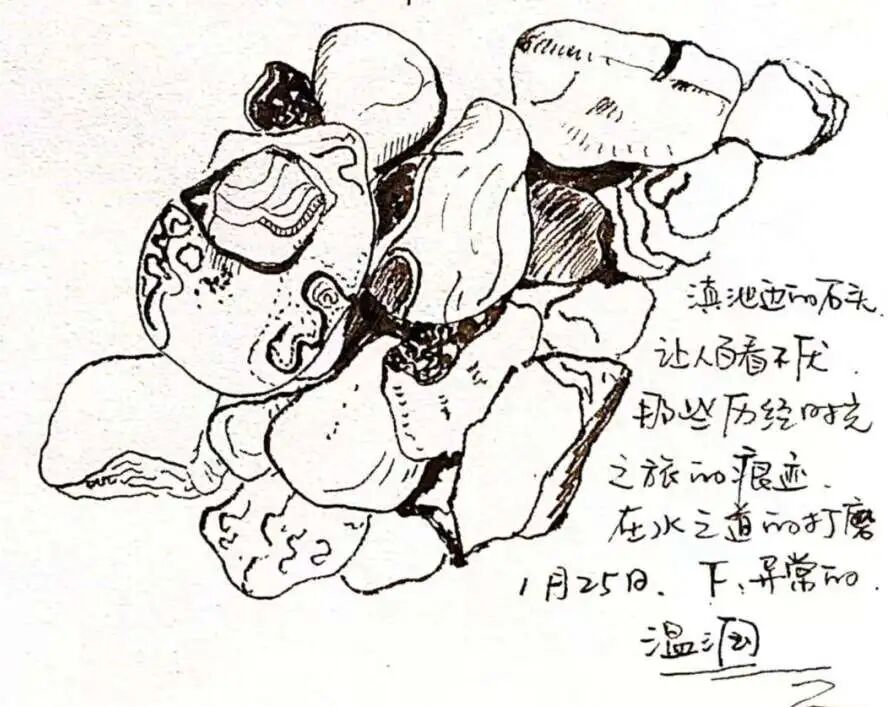 滇池边的石头.
让人百看不厌.
那些历经时光
之旅的痕迹.
在水之道的打磨
1月25日. 下、异常的.
温润